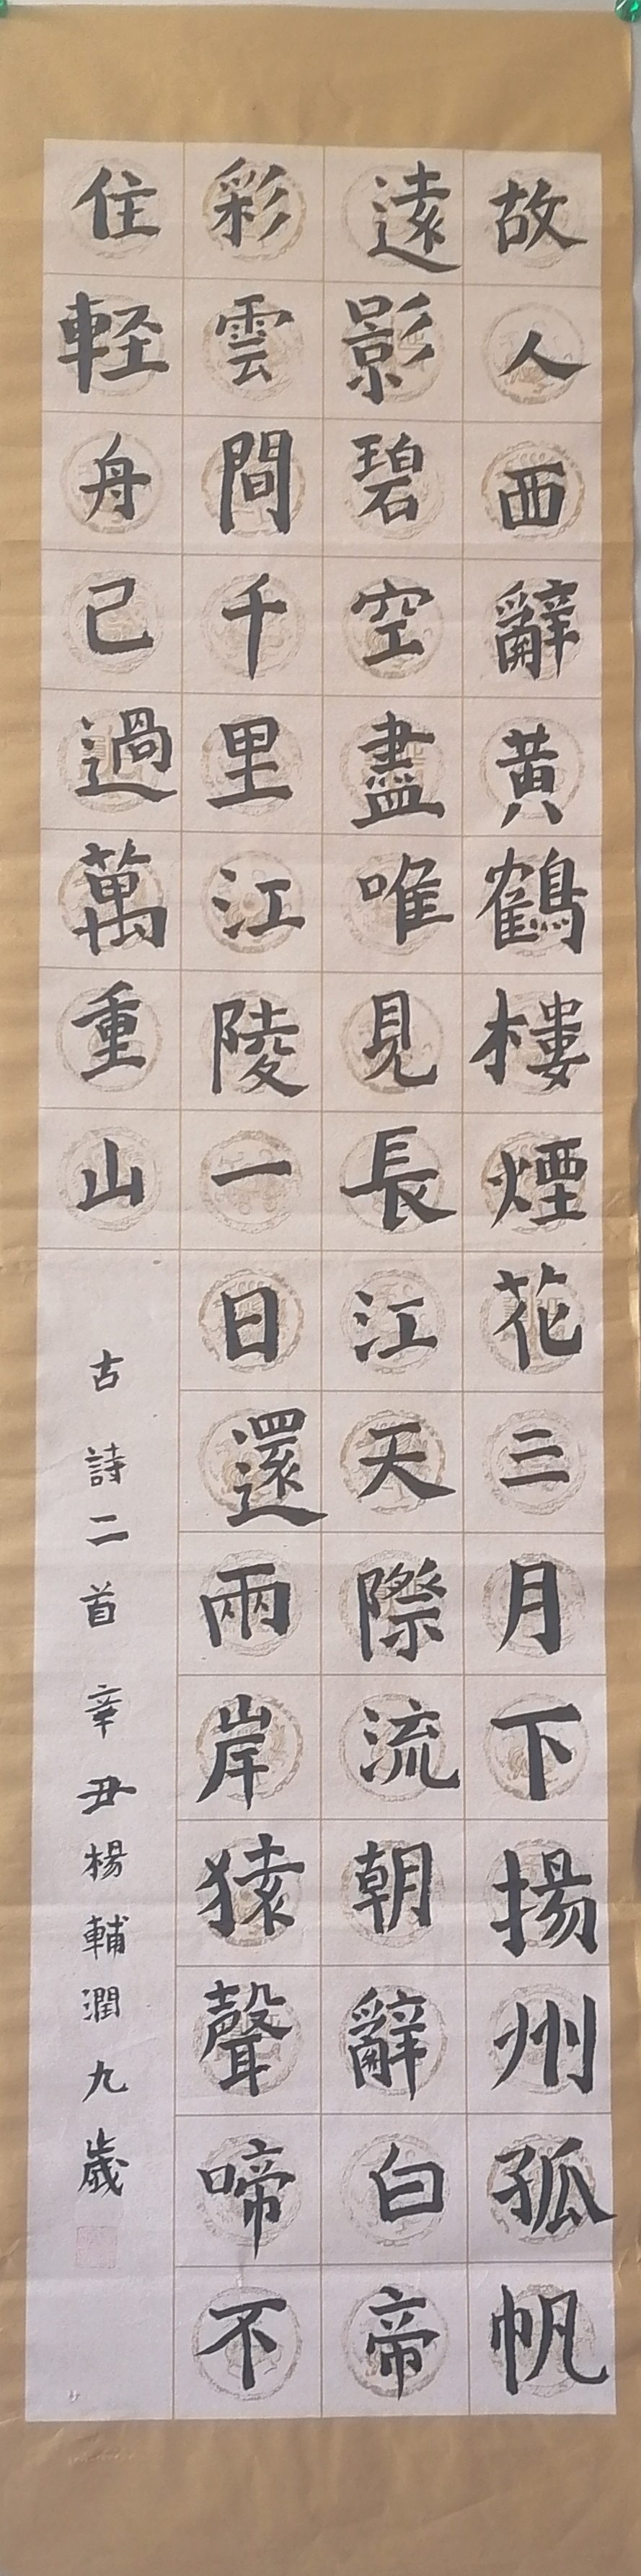 故人西辭黄鶴樓煙花三月下揚州孤帆
遠影碧空盡唯見長江天際流朝辭白帝
彩雲間千里江陵一日還兩岸猿聲啼不
住軽舟已過萬重山
古詩二首 辛丑楊輔潤九歲